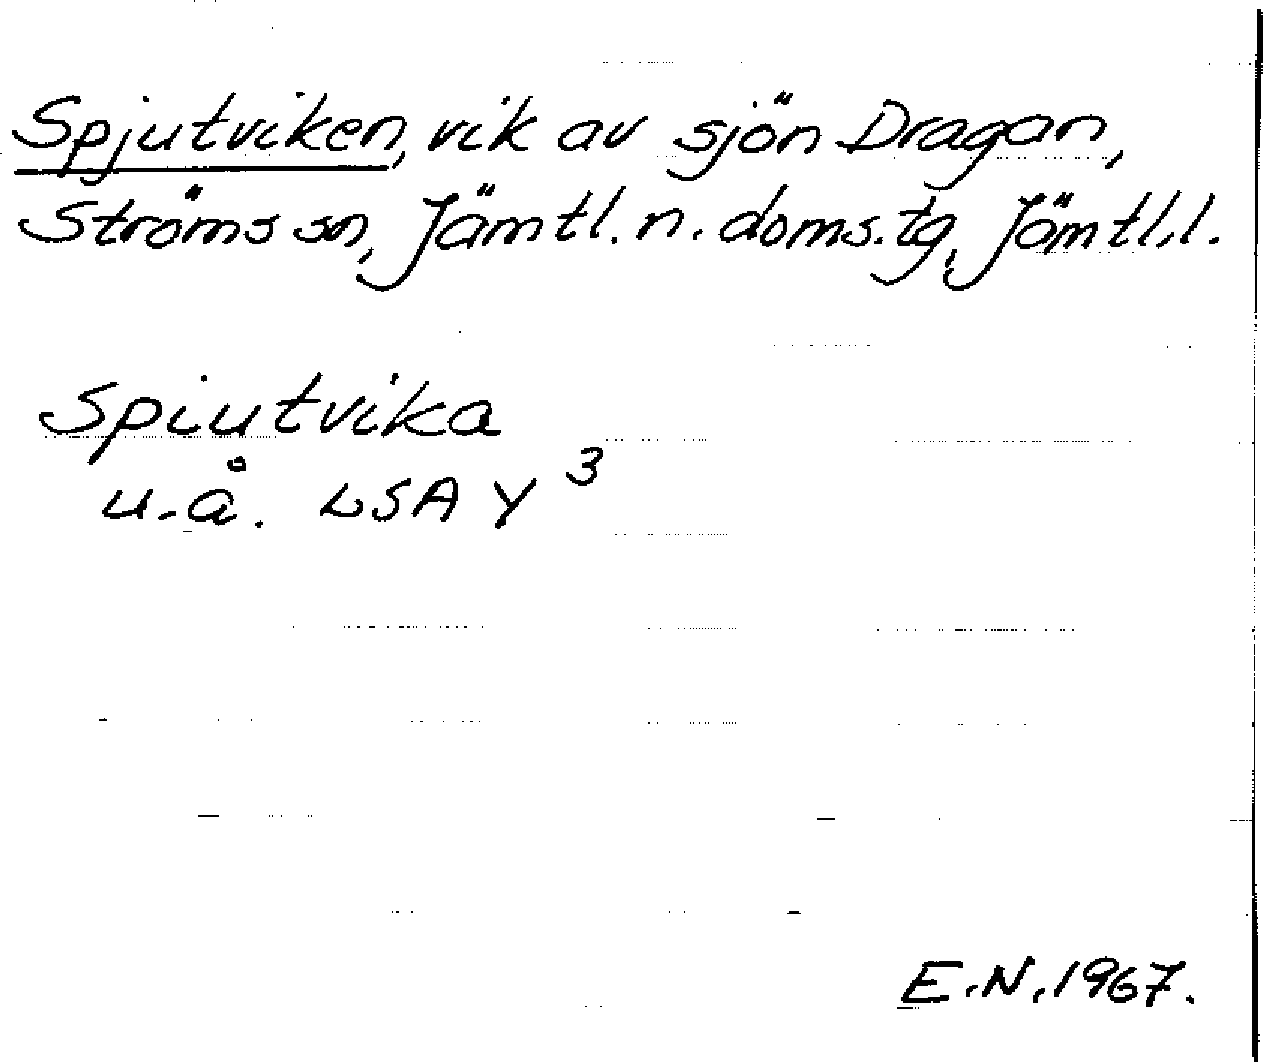 Spjutviken, vik av sjön Dragan,
Ströms sn, Jämtl. n. doms.tg, Jämtl.l.
Spiutvika
u.å. LSA Y 3
E.N. 1967.